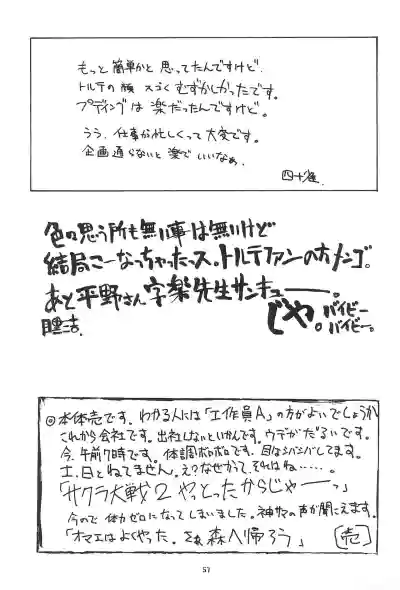 もっと簡単かと思ってたんですけど、
トルテの顔 スゴくむずかしかったです。
プディングは楽だったんですけど。
うう、仕事が忙しくって大変です。
企画通らないと楽でいいなぁ。
四十雀
色々思う所も無い事は無いけど
結局こーなっちゃったっス。トルテファンのホメンゴ。
あと平野さん宇楽先生サンキュー。
じゃ。バイビー
バイビー。
◎本体売です。わかる人には「工作員A」の方がよいでしょうか
これから会社です。出社しないといかんです。ウデがだるいです。
今、午前7時です。体調ボロボロです。目はシバシバしてます。
土、日とねてません。え?なぜかって、それはね……。
「サクラ大戦2 やっとったからじゃーっ」
今ので体力ゼロになってしまいました。神サマの声が聞こえます。
「オマエはよくやった。さぁ森へ帰ろう」 〔売〕
57